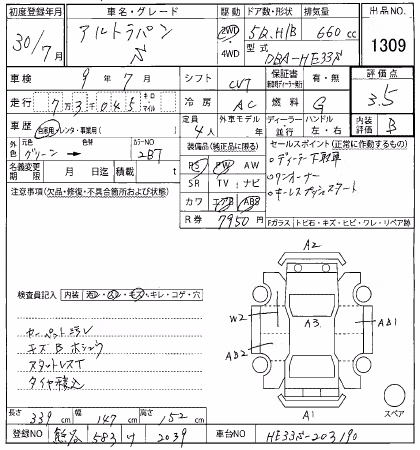 初度登録年月 車名・グレード 駆動 ドア数・形状 排気量 出品NO.
30/7月 アルトラパン 2WD 5D,H/B 660cc 1309
4WD 型式 DBA-HE33S
車検 9年7月 シフト CVT 保証書 有・無 評価点
走行 7万3千045 キロ マイル 冷房 AC 燃料 G 3.5
車歴 自家用・レンタ・事業用( ) 定員 4人 外車モデル年 ディーラー 並行 ハンドル 左・右 内装評価 B
外色 元色 グリーン → 色替 カラーNO ZB7
装備品(純正品に限る) セールスポイント(正常に作動する)
名義変更期限 月 日迄 積載 t
PS PW AW ・ディーラー下取車
SR TV ナビ ・ワンオーナー
カワ エアB ABS ・キーレスプッシュスタート
注意事項(欠品・修復・不具合箇所および状態)
R券 7950円 Fガラス トビ石・キズ・ヒビ・ワレ・リペア跡
検査員記入 内装 汚・スレ・キズ・キレ・コゲ・穴
A2
W2
A3
AB1
AB2
A1
スペア
カーペット汚レ
キズB
スタットレスT
タイヤ積込
長さ 339cm 幅 147cm 高さ 152cm
登録NO 583 2039 車台NO HE33S-203190